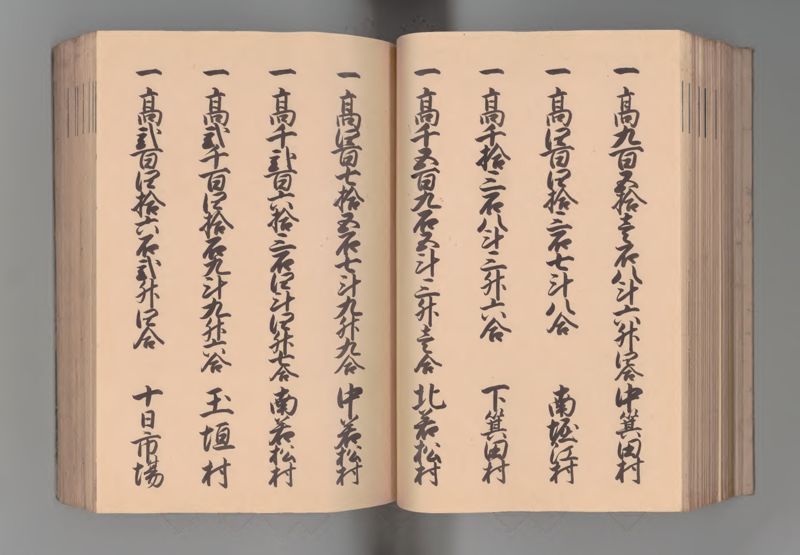 一 高九百五拾壱石八斗六升四合 中箕田村
一 高四百四拾三石七斗八合 南堀江村
一 高千拾三石八斗三升六合 下箕田村
一 高千五百九石五斗三升壱合 北若松村
一 高四百七拾五石七斗九升九合 中若松村
一 高千弐百六拾三石四斗四升七合 南若松村
一 高弐千百四拾石九斗九升六合 玉垣村
一 高弐百四拾六石弐升四合 十日市場